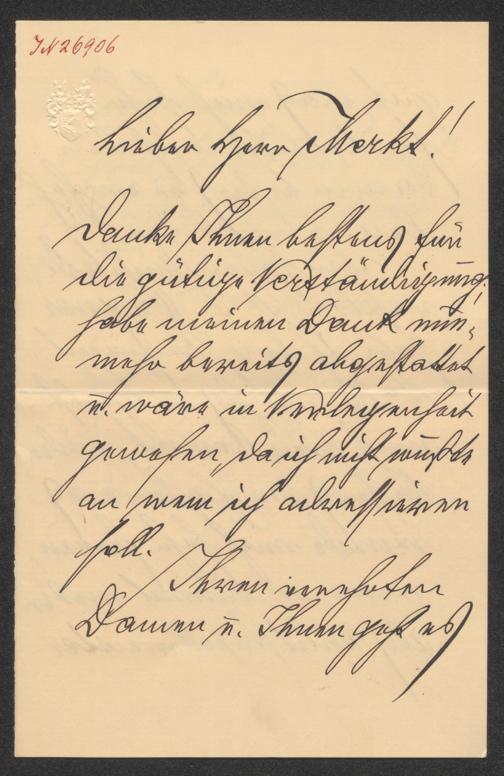 IN 26906
Lieber Herr Merkt!
Danke Ihnen bestens für
die gütige Verständigung,
habe meinen Dank nun-
mehr bereits abgestattet
u. wäre in Verlegenheit
gewesen, da ich nicht wußte
an wem ich adressieren
soll.
Ihren verehrten
Damen u. Ihnen geht es